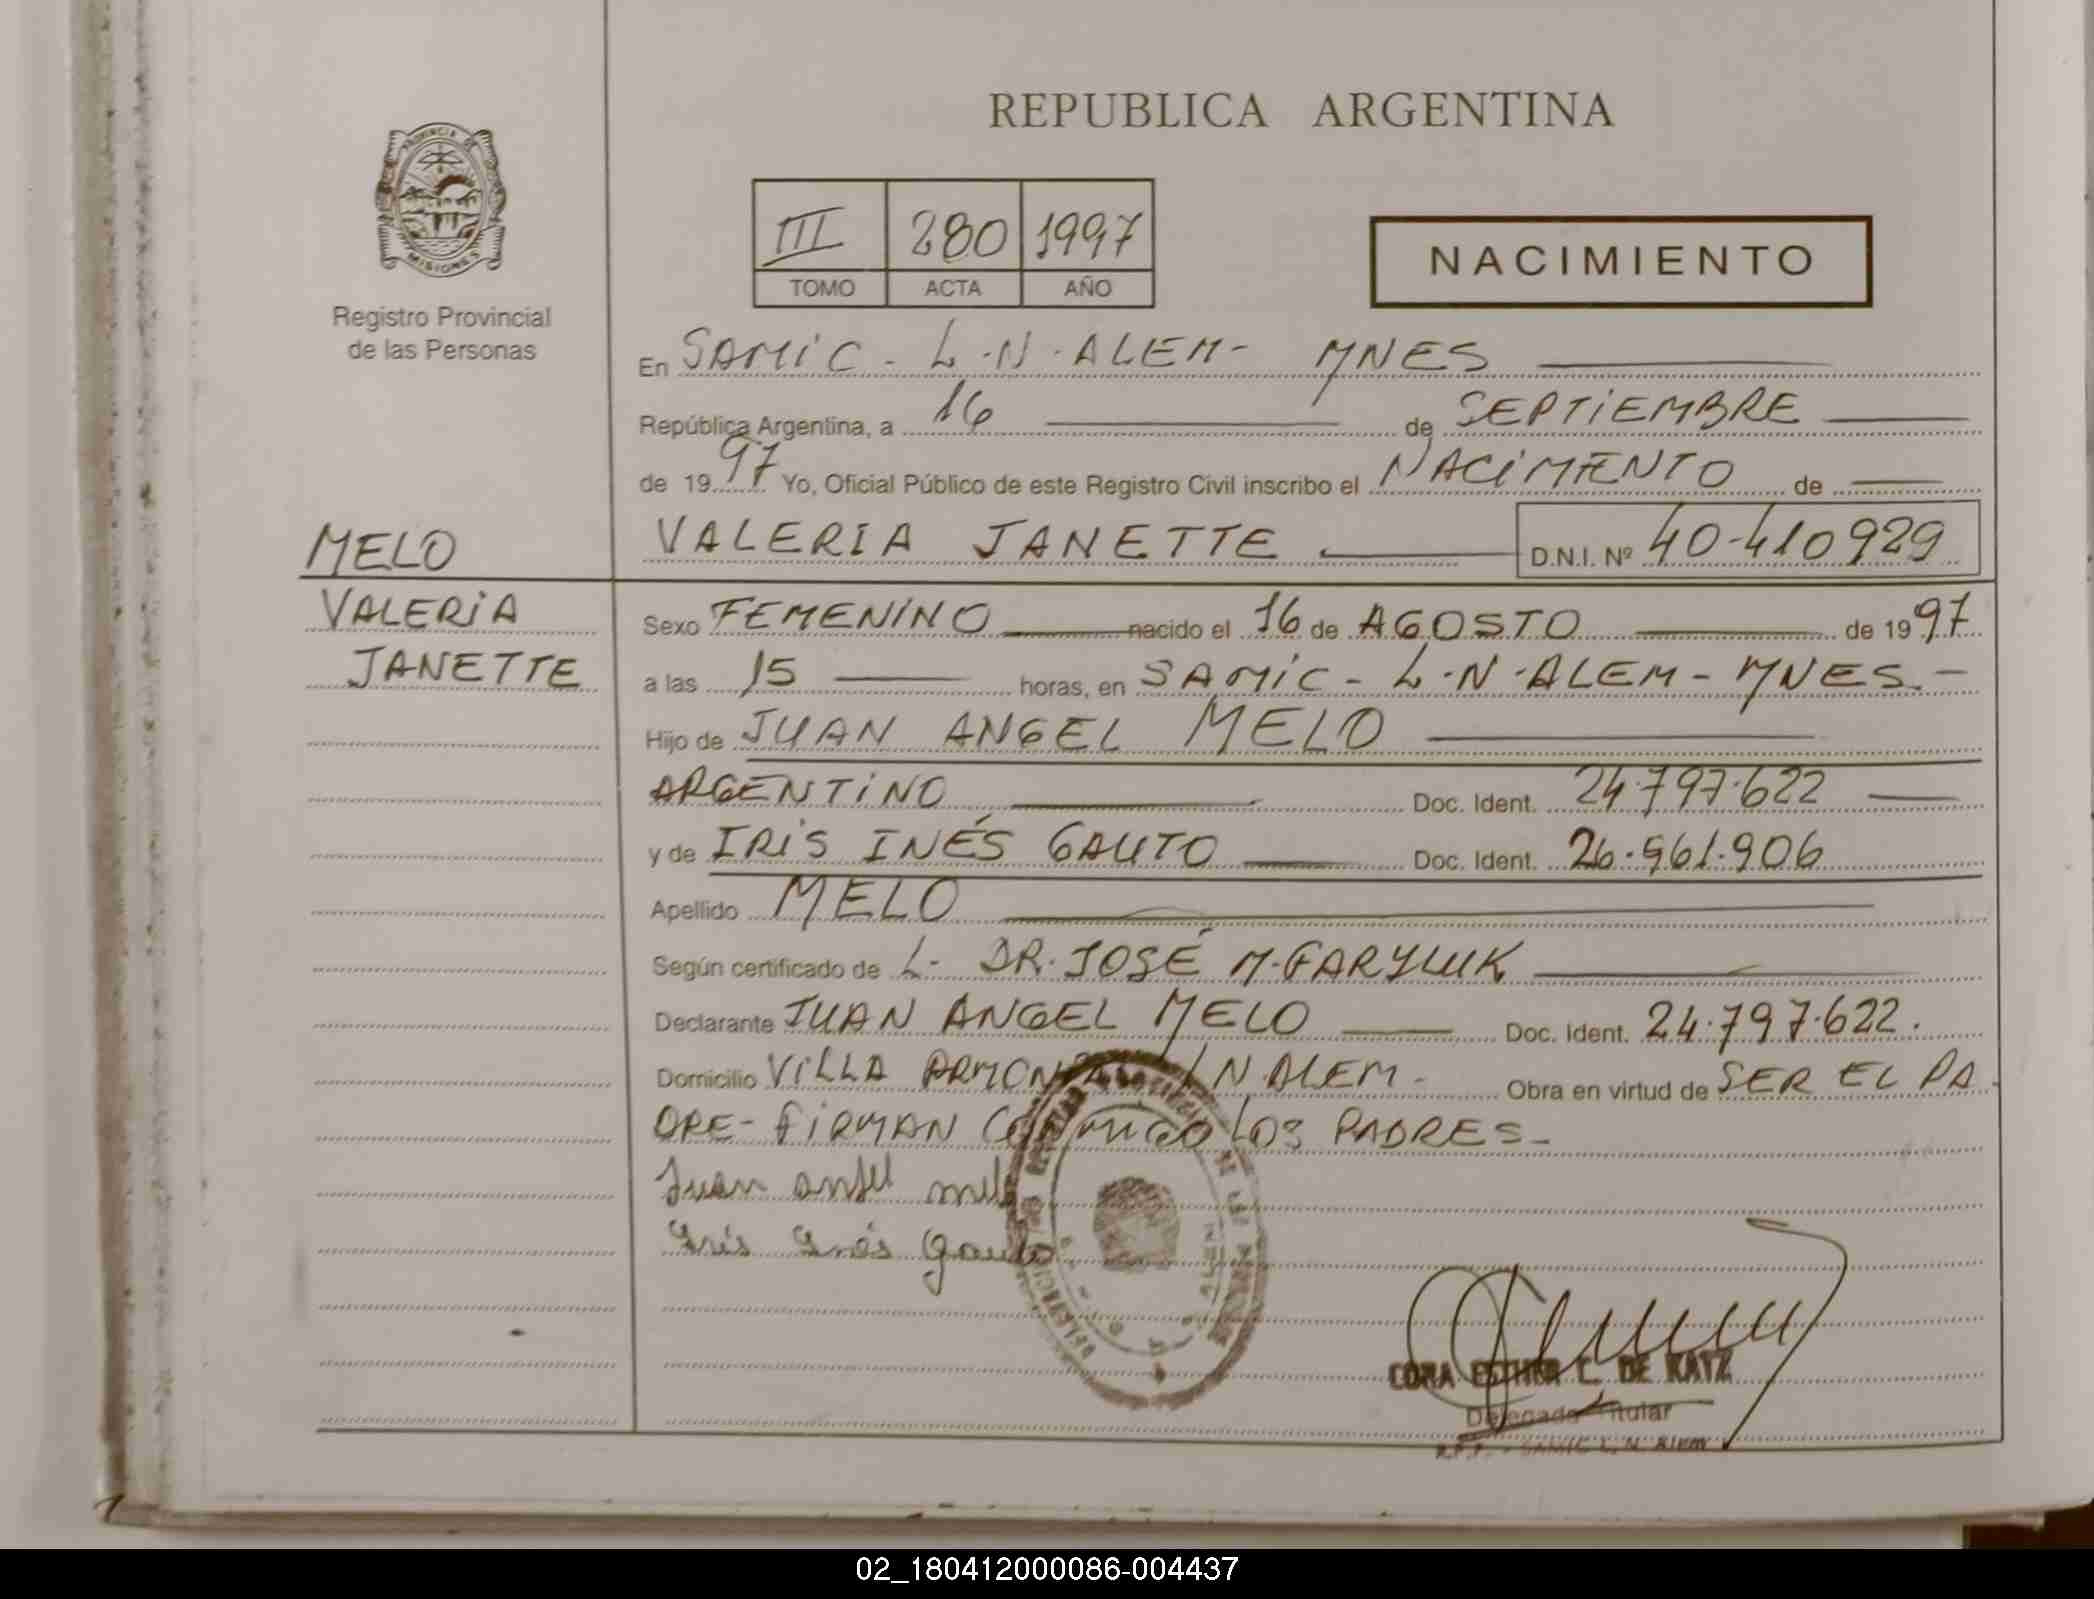 REPUBLICA ARGENTINA
PROVINCIA DE
MISIONES
Registro Provincial
de las Personas
III 280 1997
TOMO ACTA AÑO
NACIMIENTO
En SAMIC - L.N.ALEM- MNES
República Argentina, a 16 de SEPTIEMBRE
de 1997 Yo, Oficial Público de este Registro Civil inscribo el NACIMIENTO de
MELO
VALERIA JANETTE D.N.I. Nº 40-410929
VALERIA
JANETTE
Sexo FEMENINO nacido el 16 de AGOSTO de 1997
a las 15 horas, en SAMIC - L.N.ALEM - MNES.-
Hijo de JUAN ANGEL MELO
ARGENTINO Doc. Ident. 24.797.622
y de IRIS INÉS GAUTO Doc. Ident. 26.961.906
Apellido MELO
Según certificado de L. DR. JOSÉ M. GARYLUK
Declarante JUAN ANGEL MELO Doc. Ident. 24.797.622.
Domicilio VILLA L N ALEM. Obra en virtud de SER EL PA
DRE- FIRMAN CONMIGO LOS PADRES-
Juan angel melo
Iris Inés gauto
CORA ESTHER C. DE KATZ
Delegada Titular
R.P.P. - SAMIC L. N. Alem
02_180412000086-004437